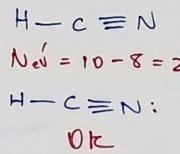 H — C ≡ N
Nev́ = 10 - 8 = 2
H — C ≡ N:
OK